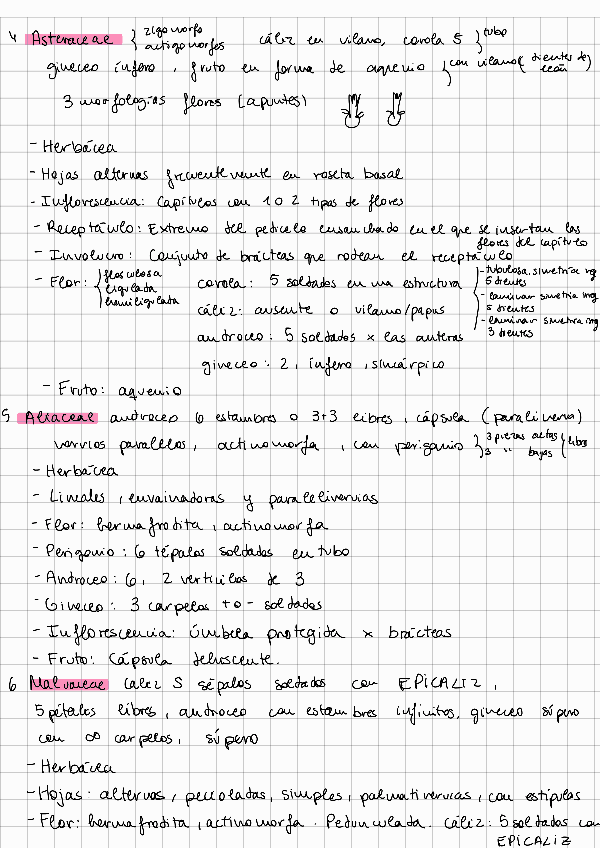 4 Asteraceae { zigomorfo
actinomorfos cáliz en vilano, corola 5 { tubo
gineceo ínfero, fruto en forma de aquenio } con vilano (dientes de león)
3 morfologías flores (apuntes)
- Herbácea
- Hojas alternas frecuentemente en roseta basal
- Inflorescencia: Capítulos con 1 o 2 tipos de flores
- Receptáculo: Extremo del pedicelo ensanchado en el que se insertan las
flores del capítulo
- Involucro: Conjunto de brácteas que rodean el receptáculo
- Flor: { flosculosa
ligulada
hemiligulada
corola: 5 soldados en una estructura
- tubulosa, simetría reg
5 dientes
- laminar simetría irreg
5 dientes
- laminar simetría irreg
3 dientes
cáliz: ausente o vilano/papus
androceo: 5 soldados x las anteras
gineceo: 2, ínfero, sincárpico
- Fruto: aquenio
5 Aliaceae androceo 6 estambres o 3+3 libres, cápsula (paralinervia)
nervios paralelos, actinomorfa, con perigonio } 3 piezas altas
3 " bajas { libres
- Herbácea
- Lineales, envainadoras y paralelinervias
- Flor: hermafrodita, actinomorfa
- Perigonio: 6 tépalos soldados en tubo
- Androceo: 6, 2 verticilos de 3
- Gineceo: 3 carpelos + o - soldados
- Inflorescencia: úmbela protegida x brácteas
- Fruto: Cápsula dehiscente.
6 Malvaceae caliz 5 sépalos soldados con EPICALIZ,
5 pétalos libres, androceo con estambres infinitos, gineceo súpero
con ∞ carpelos, súpero
- Herbácea
- Hojas: alternas, pecioladas, simples, palmatinervias, con estípulas
- Flor: hermafrodita, actinomorfa. Pedunculada. cáliz: 5 soldados con
EPICALIZ